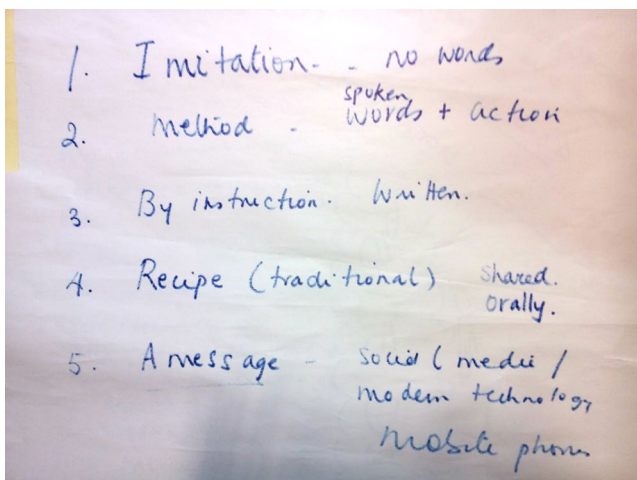 1. Imitation - - no words
spoken
2. Method - words + action
3. By instruction. Written.
4. Recipe (traditional) shared.
orally.
5. A message - social media /
modern technology
mobile phones